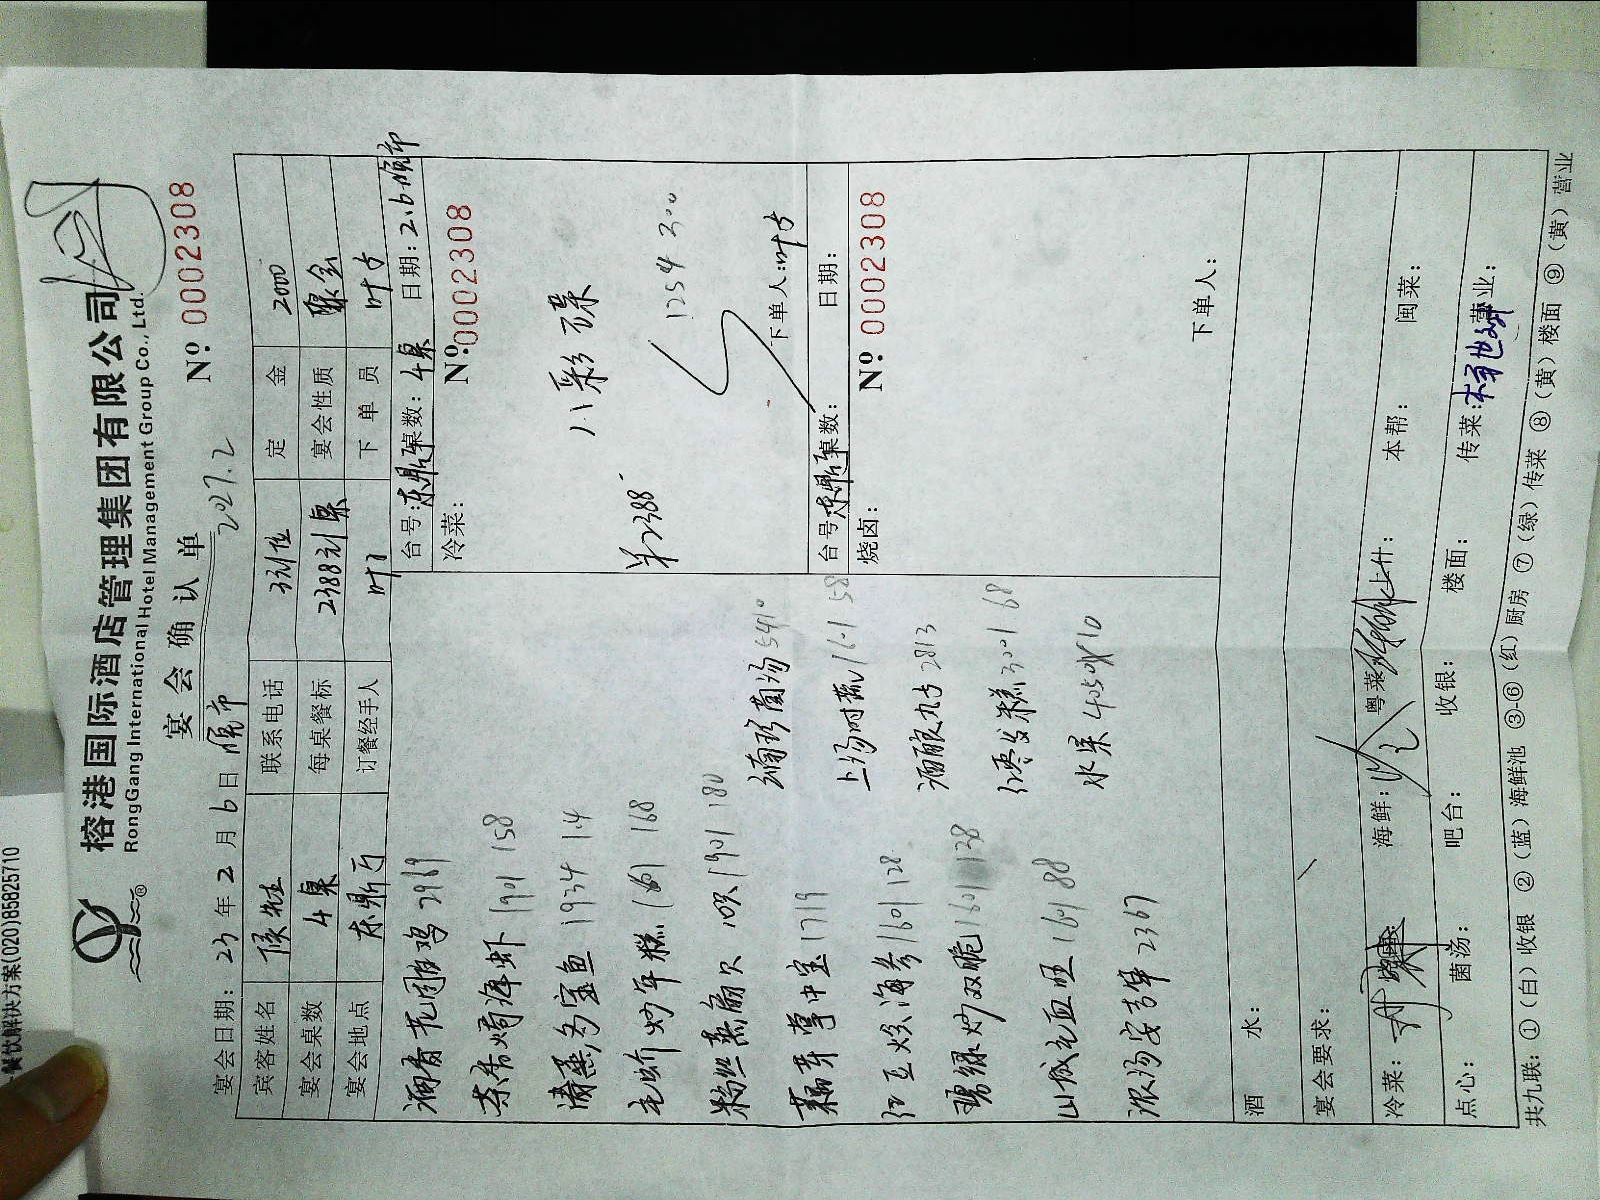 餐饮解决方案(020)85825710
榕港国际酒店管理集团有限公司
RongGang International Hotel Management Group Co., Ltd.
宴会确认单
Nº: 0002308
宴会日期: 23 年 2 月 6 日
宾客姓名 联系电话 定金 2000
宴会桌数 4桌 每桌餐标 2388元/桌 宴会性质 聚会
宴会地点 东鼎厅 订餐经手人 叶 下单员 叶
台号: 东鼎厅 桌数: 4桌 日期: 2.6
冷菜: Nº: 0002308
八彩碟
1254 300
单2388
下单人:
台号: 东鼎厅 桌数: 日期:
烧卤: Nº 0002308
下单人:
酒香花雕鸡 2969
茶香焗海虾 1901 158
清蒸多宝鱼 1934 1.4
毛蚧炒年糕 1661 168
粉丝蒸扇贝 10只 1901 180
藕芽掌中宝 1719
红豆烧海参 1601 128
碧绿炒双脆 1601 138
山城毛血旺 1601 88
浓汤娄青笋 2367
菌汤 5410
上汤时蔬 1601 58
酒酿丸子 2813
红枣发糕 3001 68
水果 4050 10
酒水:
宴会要求:
冷菜: 海鲜: 粤菜: 上什: 本帮: 闽菜:
点心: 菌汤: 吧台: 收银: 楼面: 传菜: 营业:
共九联: ①(白)收银 ②(蓝)海鲜池 ③-⑥(红)厨房 ⑦(绿)传菜 ⑧(黄)楼面 ⑨(黄)营业